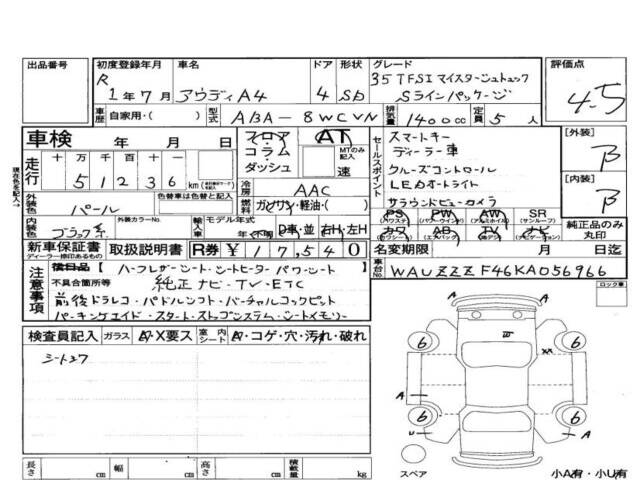 出品番号 初度登録年月 車名 ドア 形状 グレード 評価点
R 1年7月 アウディA4 4 Sb 35TFSIマイスターシュトュック Sラインパッケージ 4.5
車歴 自家用・( ) 型式 ABA-8WCVN 排気量 1400cc 定員 5人
車検 年 月 日
フロア・コラム・ダッシュ AT MTのみ記入 速
セールスポイント
スマートキー
ディーラー車
クルーズコントロール
LEDオートライト
サラウンドビューカメラ
[外装] B
[内装] B
現在色を記入→
走行 十万 万 千 百 十
5 1 2 3 6 km
冷房 AAC
外装色 パール 色替車は色替と記入
燃料 ガソリン・軽油・( )
内装色 ブラック系 外装カラーNo.
輸入車 モデル年式 年(不明) D車・並 右H・左H
PS (パワステ) PW (パワーウインド) AW (アルミホイル) SR (サンルーフ)
カワ AB (エアバック) TV ナビ
純正品のみ丸印
新車保証書 ディーラー捺印あるもの 取扱説明書 R券 ¥17,540
名変期限 月 日迄
注意事項
欠品 [ハーフレザーシート・シートヒーター パワーシート
不具合箇所等 純正ナビ・TV・ETC
前後ドラレコ・パドルシフト・バーチャルコックピット
パーキングエイド・スタートストップシステム・シートメモリー
車台No. WAUZZZF46KA056966
ロック車
検査員記入 ガラス A・X要ス 室内シート A・コゲ・穴・汚れ・破れ
シートスワ
6 6
XA
A A
6 6
U A
スペア
小A有・小U有
長さ cm 幅 cm 高さ cm 積載量 kg